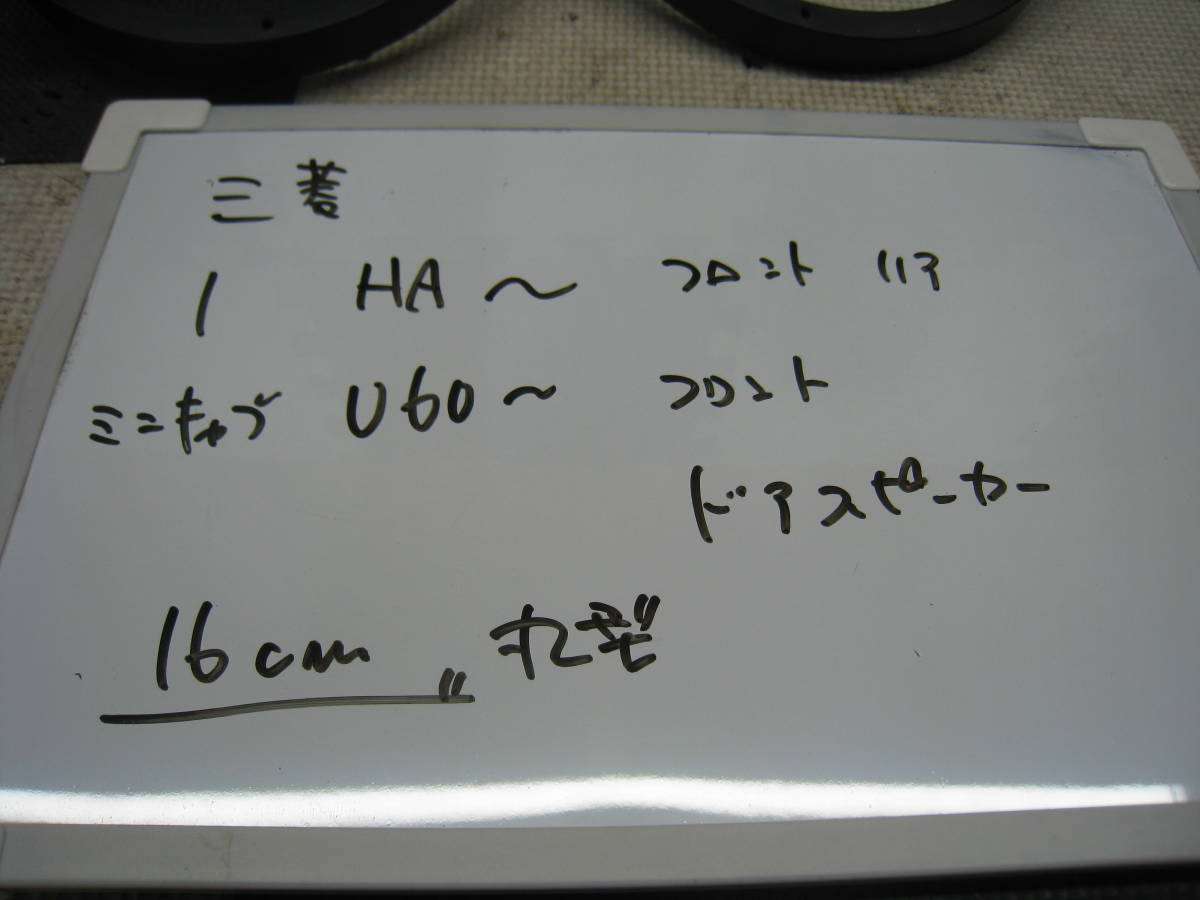 三菱
i HA〜 フロント リア
ミニキャブ U60〜 フロント
ドアスピーカー
16cm